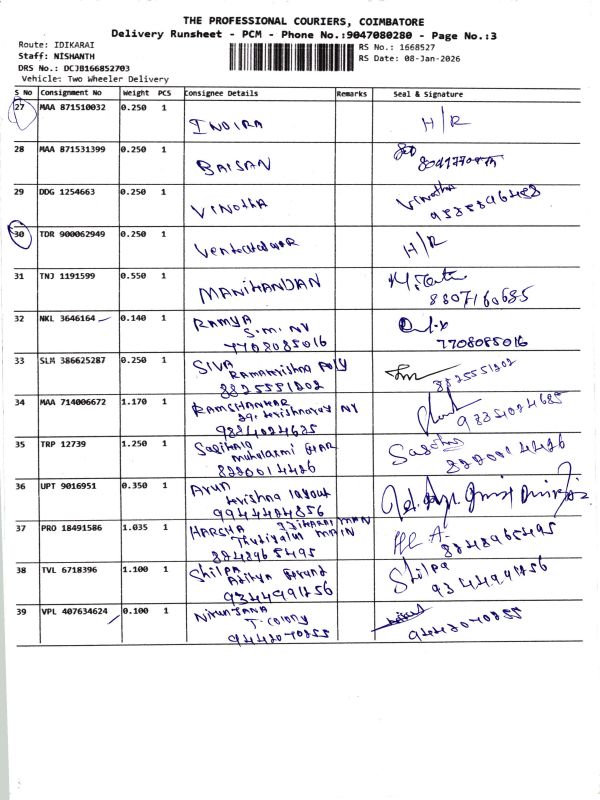 THE PROFESSIONAL COURIERS, COIMBATORE
Delivery Runsheet - PCM - Phone No.:9047080280 - Page No.:3
Route: IDIKARAI
Staff: NISHANTH
DRS No.: DCJB166852703
Vehicle: Two Wheeler Delivery
RS No.: 1668527
RS Date: 08-Jan-2026
S No Consignment No Weight PCS Consignee Details Remarks Seal & Signature
27 MAA 871510032 0.250 1 INDIRA H/R
28 MAA 871531399 0.250 1 BAISAN
29 DDG 1254663 0.250 1 VINOTHA Vinotha
30 TDR 900062949 0.250 1 H/R
31 TNJ 1191599 0.550 1 MANIKANDAN 8807160685
32 NKL 3646164 0.140 1 RAMYA
S.M. NY
7708085016 7708085016
33 SLM 386625287 0.250 1 SIVA
Ramakrishna Poly
8825551202 8825551202
34 MAA 714006672 1.170 1 RAMSHANKAR
NY
35 TRP 12739 1.250 1
8220014426 8220014426
36 UPT 9016951 0.350 1 Arun
krishna layout
9944424856
37 PRO 18491586 1.035 1 HARSHA
MAIN
8248965495 8248965495
38 TVL 6718396 1.100 1 Shilpa Shilpa
9344991756 9344991756
39 VPL 407634624 0.100 1 Niranjana
T. Colony